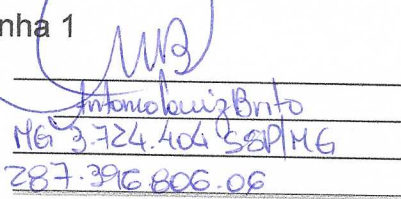 nha 1
Antonio Luiz Brito
MG 3.724.404 SSP/MG
287.396.806.06